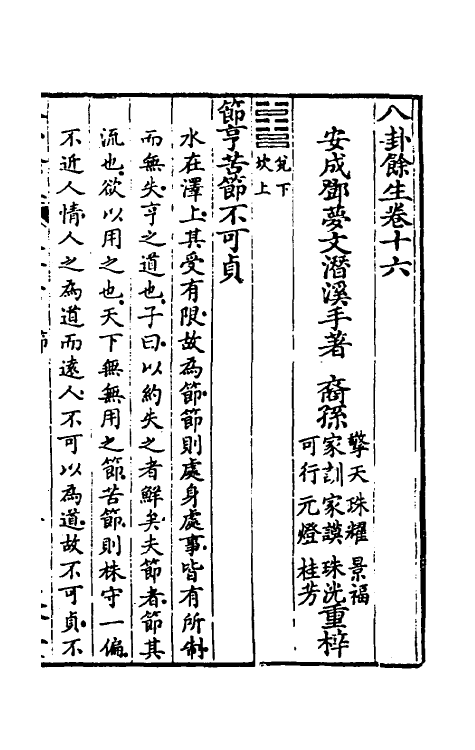 八卦餘生卷十六
安成鄧夢文潛溪手著 裔孫
擎天 珠耀 景福
家訓 家謨 珠洸 重梓
可行 元燈 桂芳
兌下
坎上
節亨苦節不可貞
水在澤上其受有限故為節節則處身處事皆有所制
而無失亨之道也子曰以約失之者鮮矣夫節者節其
流也欲以用之也天下無無用之節苦節則株守一偏
不近人情人之為道而遠人不可以為道故不可貞不
節